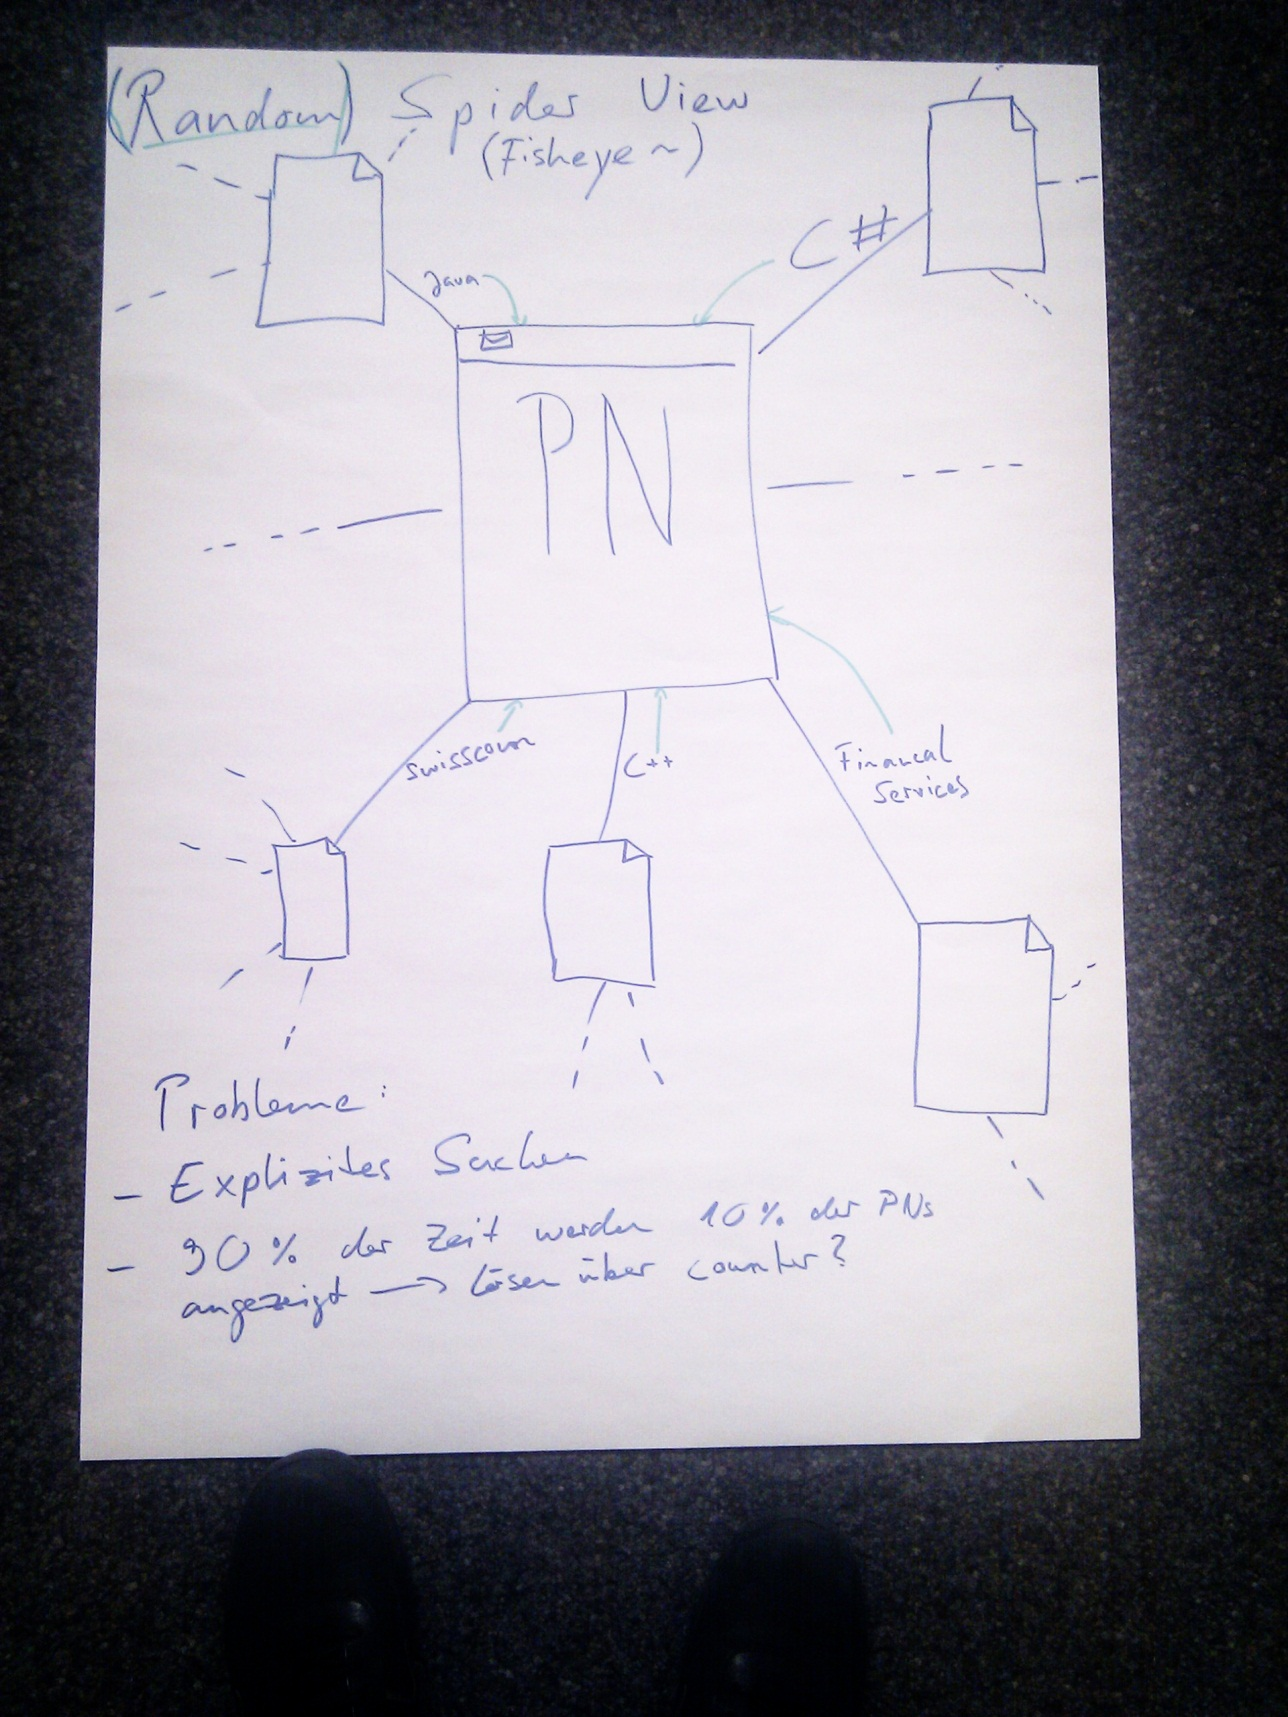 (Random) Spider View
(Fisheye ~)
Java
C#
PN
swisscom
C++
Financal
Services
Probleme:
- Explizites Suchen
- 90% der Zeit werden 10% der PNs
angezeigt → Lösen über counter?